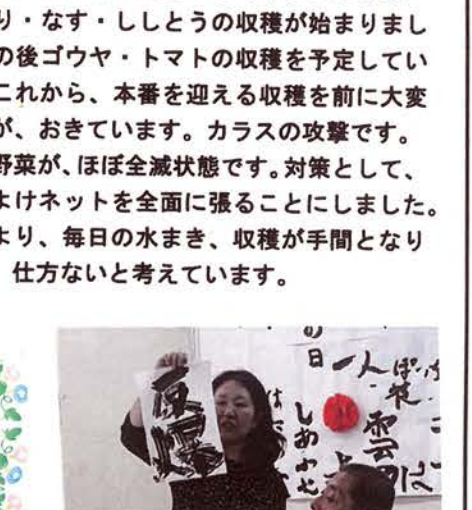 り・なす・ししとうの収穫が始まりまし
の後ゴウヤ・トマトの収穫を予定してい
これから、本番を迎える収穫を前に大変
が、おきています。カラスの攻撃です。
野菜が、ほぼ全滅状態です。対策として、
よけネットを全面に張ることにしました。
より、毎日の水まき、収穫が手間となり
仕方ないと考えています。
の日
一人
しあ
雲